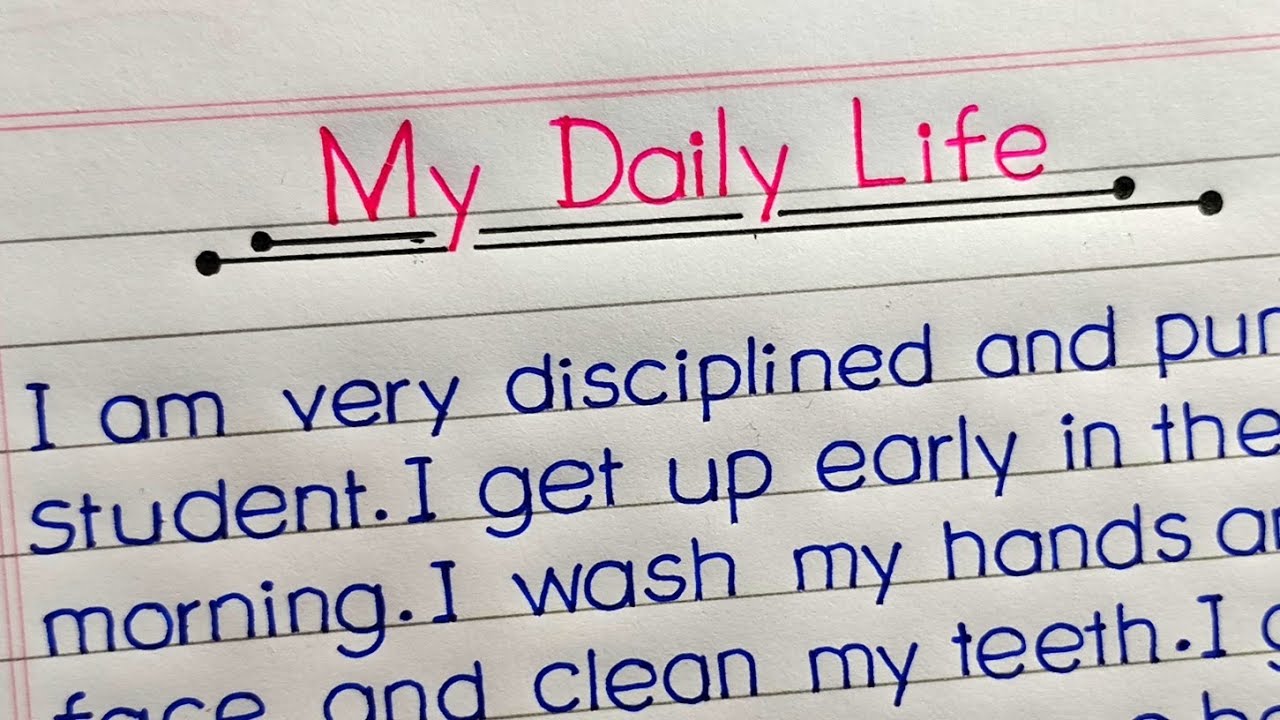 My Daily Life
I am very disciplined and pun
student. I get up early in the
morning. I wash my hands
face and clean my teeth. I